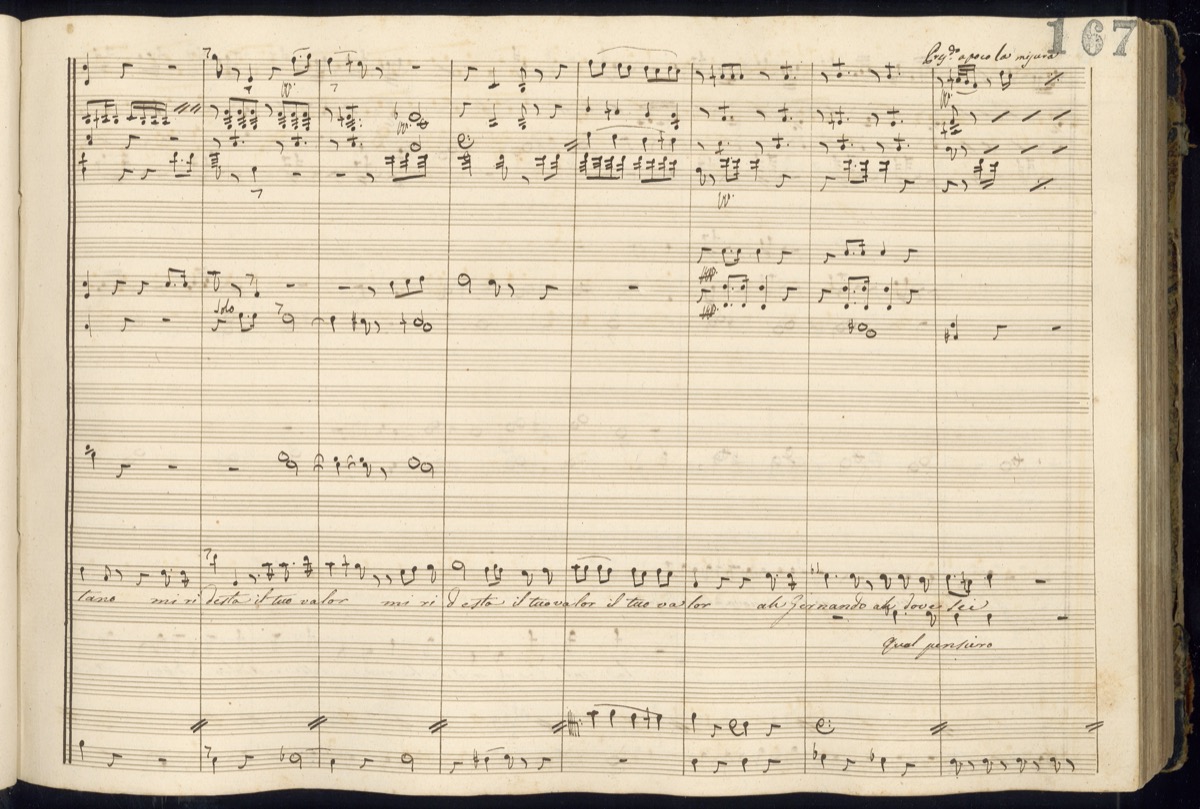 167
apoco la misura
Solo
tano mi ri desta il tuo valor mi ri desta il tuo valor il tuo valor ah Fernando ah dove sei
Qual pensiero